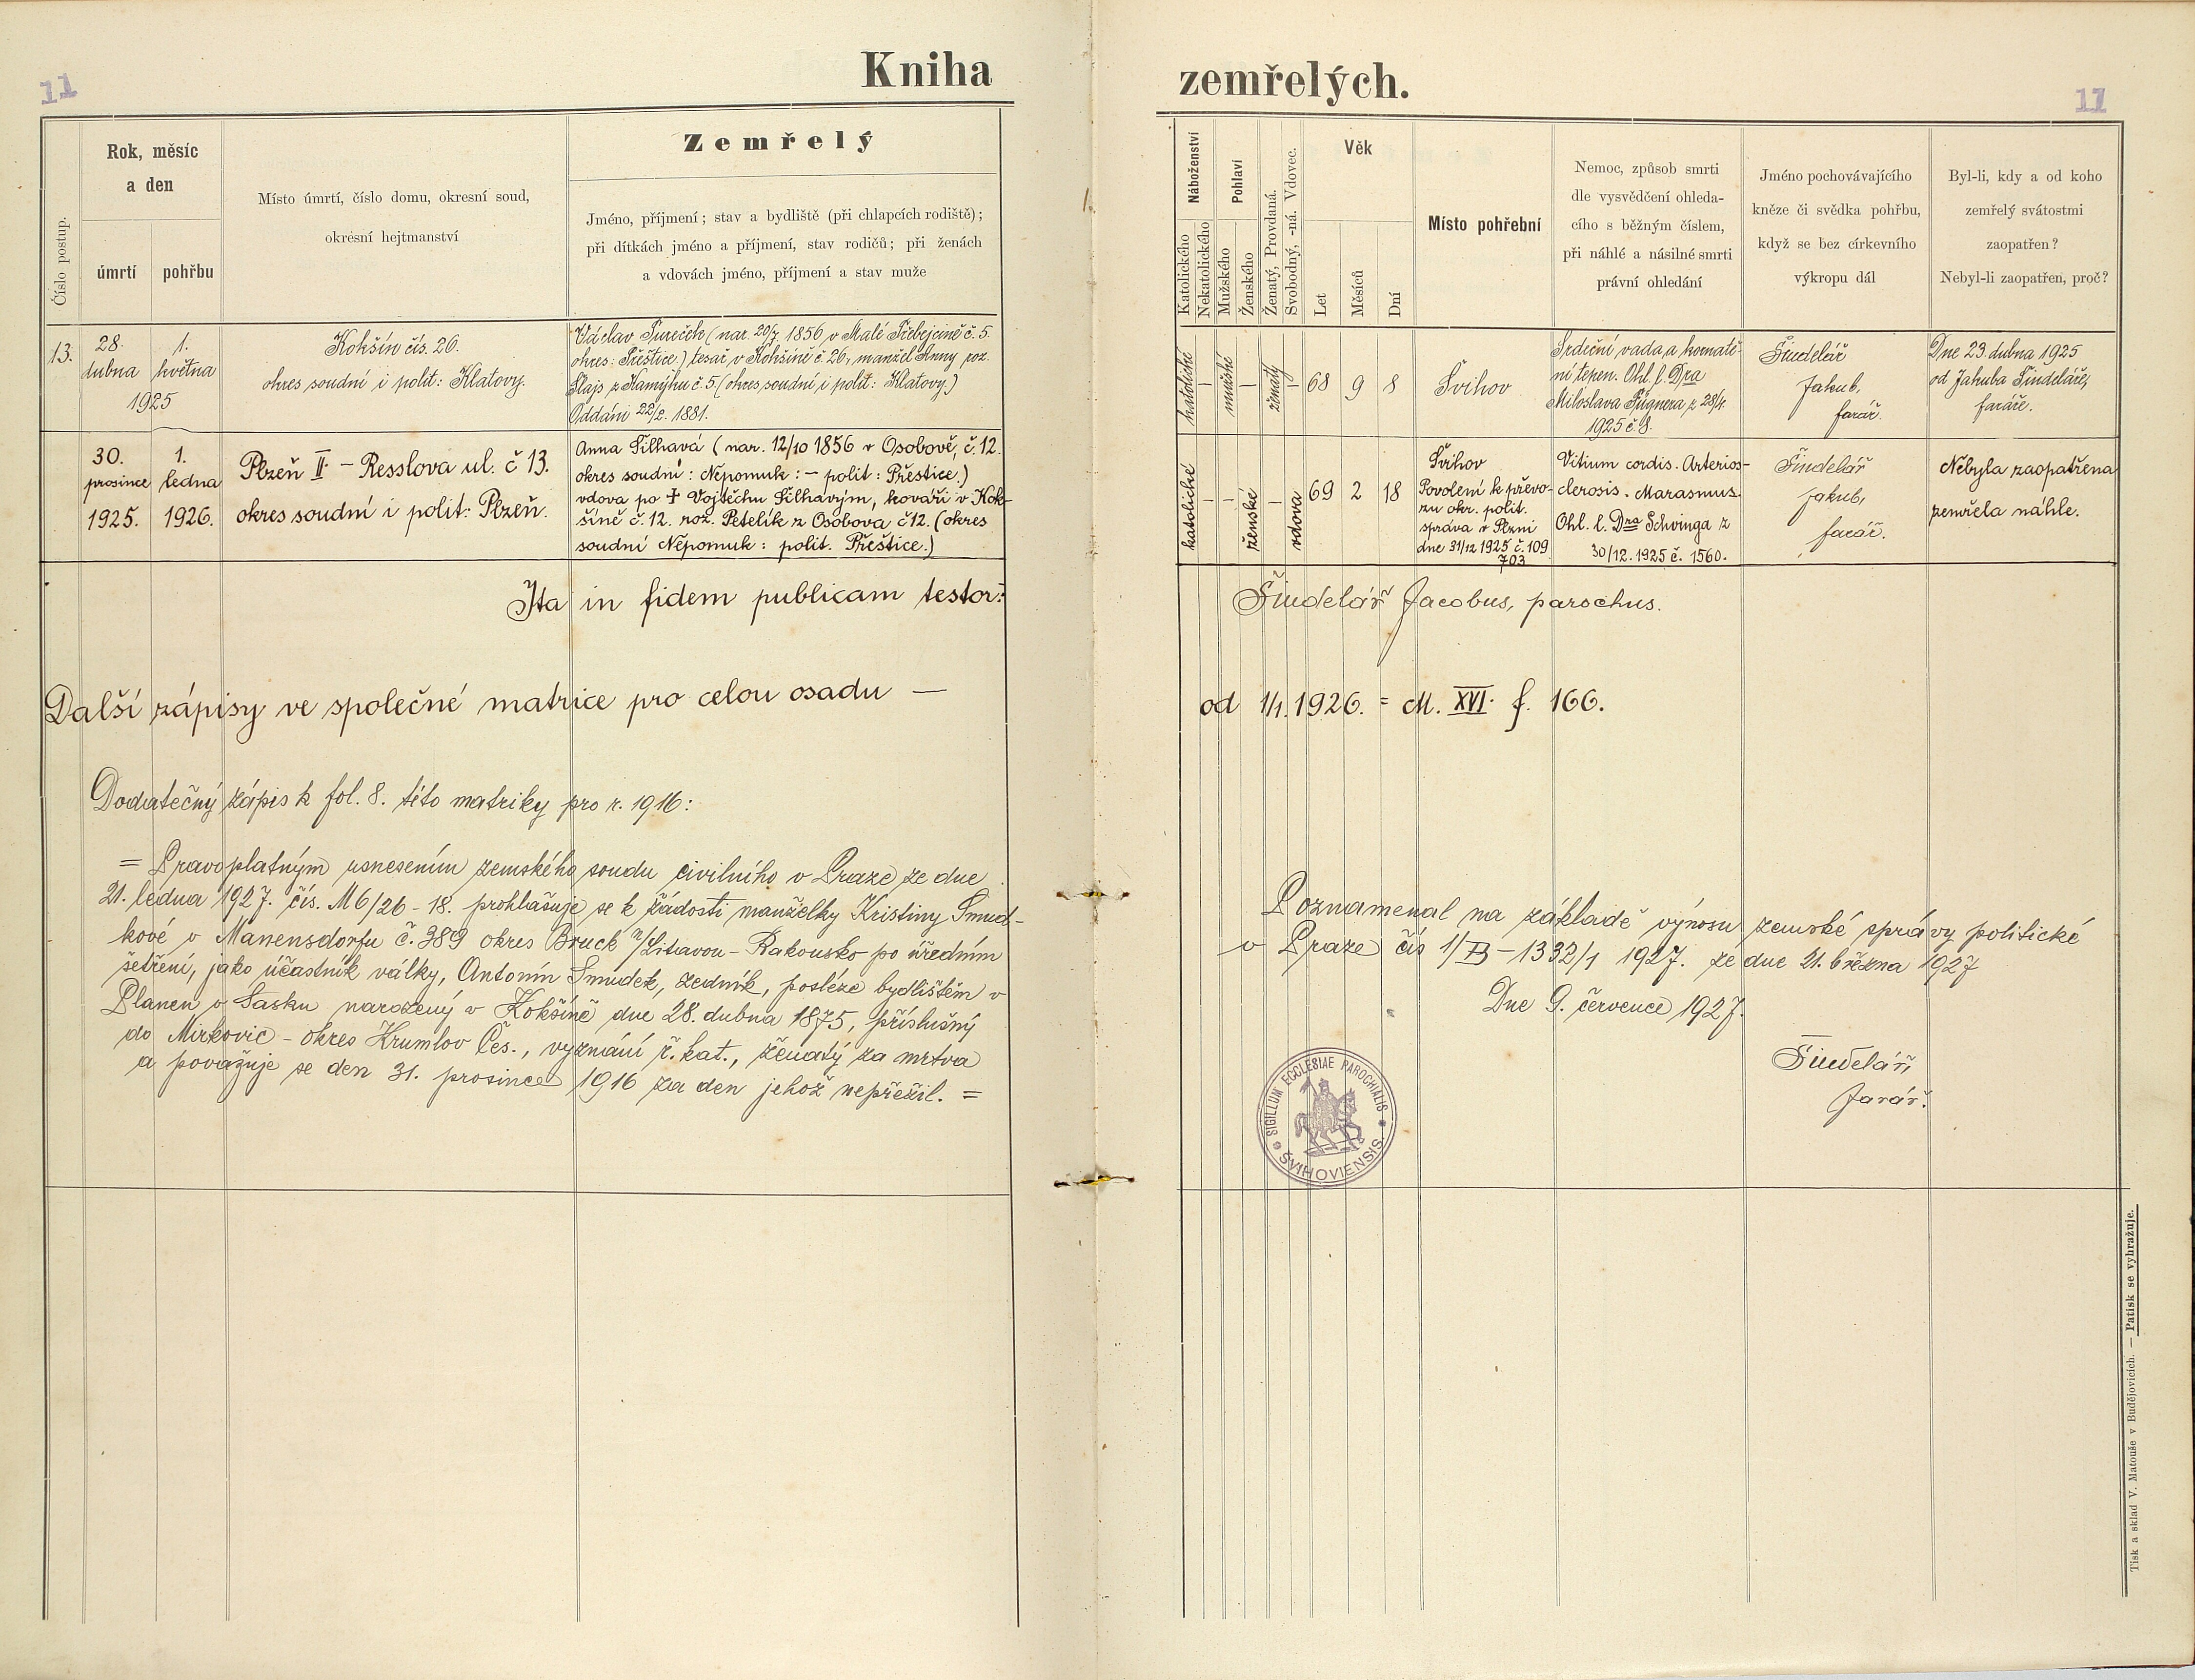 11
Kniha
Číslo postup.
Rok, měsíc
a den
úmrtí
pohřbu
Místo úmrtí, číslo domu, okresní soud,
okresní hejtmanství
Zemřelý
Jméno, příjmení; stav a bydliště (při chlapcích rodiště);
při dítkách jméno a příjmení, stav rodičů; při ženách
a vdovách jméno, příjmení a stav muže
13.
28.
dubna
1.
května
1925
Kokšín čís. 26.
okres soudní i polit: Klatovy.
Václav Tureček (nar. 20/7. 1856 v Malé Třebejcině č. 5.
okres: Přeštice.) tesař v Kokšíně č. 26, manžel Anny roz.
Šlajs z Kamýku č. 5. (okres soudní i polit: Klatovy.)
Oddáni 22/2. 1881.
30.
prosince
1925.
1.
ledna
1926.
Plzeň II. – Resslova ul. č 13.
okres soudní i polit: Plzeň.
Anna Šilhavá (nar. 12/10 1856 v Osobově, č. 12.
okres soudní: Nepomuk: – polit: Přeštice.)
vdova po † Vojtěchu Šilhavým, kováři v Kok-
šíně č. 12. roz. Petelík z Osobova č 12. (okres
soudní Nepomuk: polit. Přeštice.)
Ita in fidem publicam testor:
Další zápisy ve společné matrice pro celou osadu —
Dodatečný zápis k fol. 8. této matriky pro r. 1916:
= Pravoplatným usnesením zemského soudu civilního v Praze ze dne
21. ledna 1927. čís. M 6/26 - 18. prohlašuje se k žádosti manželky Kristiny Smud-
kové v Manensdorfu č. 389 okres Bruck n/Litavou – Rakousko po úředním
šetření, jako účastník války, Antonín Smudek, zedník, posléze bydlištěm v
Planen v Sasku narozený v Kokšíně dne 28. dubna 1875, příslušný
do Mirkovic – okres Krumlov Čes., vyznání ř. kat., ženatý za mrtva
a považuje se den 31. prosince 1916 za den jehož nepřežil. =
zemřelých.
11
Náboženství
Katolického
Nekatolického
Pohlaví
Mužského
Ženského
Ženatý, Provdaná.
Svobodný, -ná. Vdovec.
Věk
Let
Měsíců
Dní
Místo pohřební
Nemoc, způsob smrti
dle vysvědčení ohleda-
cího s běžným číslem,
při náhlé a násilné smrti
právní ohledání
Jméno pochovávajícího
kněze či svědka pohřbu,
když se bez církevního
výkropu dál
Byl-li, kdy a od koho
zemřelý svátostmi
zaopatřen?
Nebyl-li zaopatřen, proč?
katolické
–
mužské
–
ženatý
–
68
9
8
Švihov
Srdeční vada a kornatě-
ní tepen. Ohl. l. Dra
Miloslava Fügnera z 28/4.
1925 č. 8.
Šindelář
Jakub,
farář.
Dne 23. dubna 1925
od Jakuba Šindeláře,
faráře.
katolické
–
–
ženské
–
vdova
69
2
18
Švihov
Povolení k převo-
zu okr. polit.
správa v Plzni
dne 31/12 1925 č. 109
703
Vitium cordis. Arterios-
clerosis. Marasmus.
Ohl. l. Dra Schwinga z
30/12. 1925 č. 1560.
Šindelář
Jakub,
farář.
Nebyla zaopatřena
zemřela náhle.
Šindelář Jacobus, parochus.
od 1/1. 1926. = M. XVI. f. 166.
Poznamenal na základě výnosu zemské správy politické
v Praze čís 1/B – 1332/1 1927. ze dne 21. března 1927
Dne 9. července 1927.
Šindelář,
farář.
SIGILLUM ECCLESIAE PAROCHIALIS
ŠVIHOVIENSIS
Tisk a sklad V. Matouše v Budějovicích. — Patisk se vyhražuje.